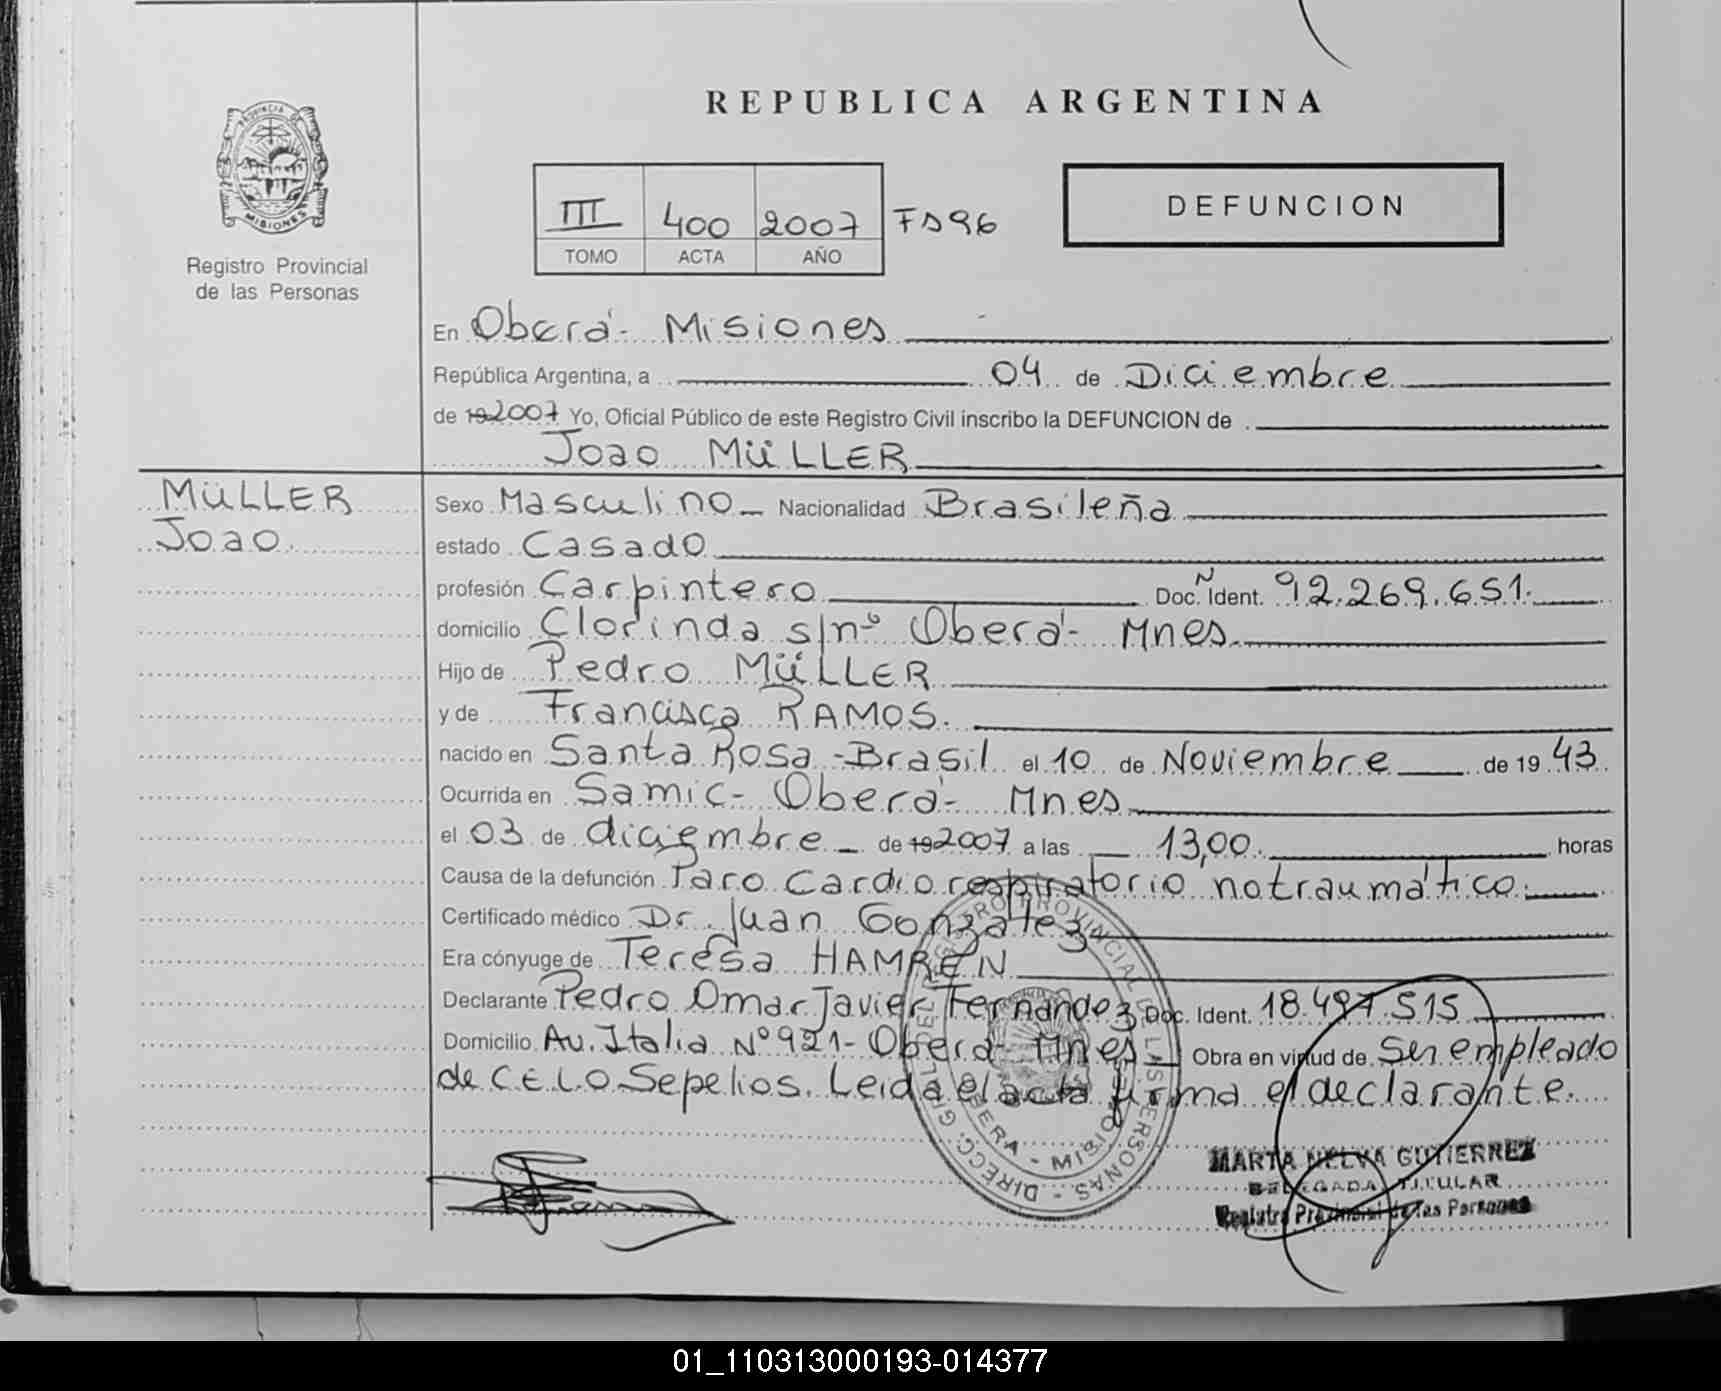 REPUBLICA ARGENTINA
PROVINCIA DE MISIONES
Registro Provincial
de las Personas
III 400 2007 Fº 96
TOMO ACTA AÑO
DEFUNCION
En Oberá - Misiones
República Argentina, a 04 de Diciembre
de 19 2007 Yo, Oficial Público de este Registro Civil inscribo la DEFUNCION de
Joao MüLLER
MüLLER
Joao
Sexo Masculino Nacionalidad Brasileña
estado Casado
profesión Carpintero Doc. Ident. Nº 92.269.651.
domicilio Clorinda s/nº Oberá - Mnes
Hijo de Pedro MüLLER
y de Francisca RAMOS.
nacido en Santa Rosa - Brasil el 10 de Noviembre de 19 43
Ocurrida en Samic - Oberá - Mnes
el 03 de diciembre de 19 2007 a las 13,00 horas
Causa de la defunción Paro Cardiorespiratorio no traumático.
Certificado médico Dr. Juan Gonzalez
Era cónyuge de Teresa HAMREN
Declarante Pedro Omar Javier Fernandez Doc. Ident. 18.497.515
Domicilio Av. Italia Nº 921 - Oberá - Mnes Obra en virtud de Ser empleado
de C.E.L.O. Sepelios. Leida el acta firma el declarante.
DIRECC. GRAL. DEL REGISTRO PROVINCIAL DE LAS PERSONAS -
OBERA - MISIONES
MARTA NELVA GUTIERREZ
DELEGADA TITULAR
Registro Provincial de las Personas
01_110313000193-014377